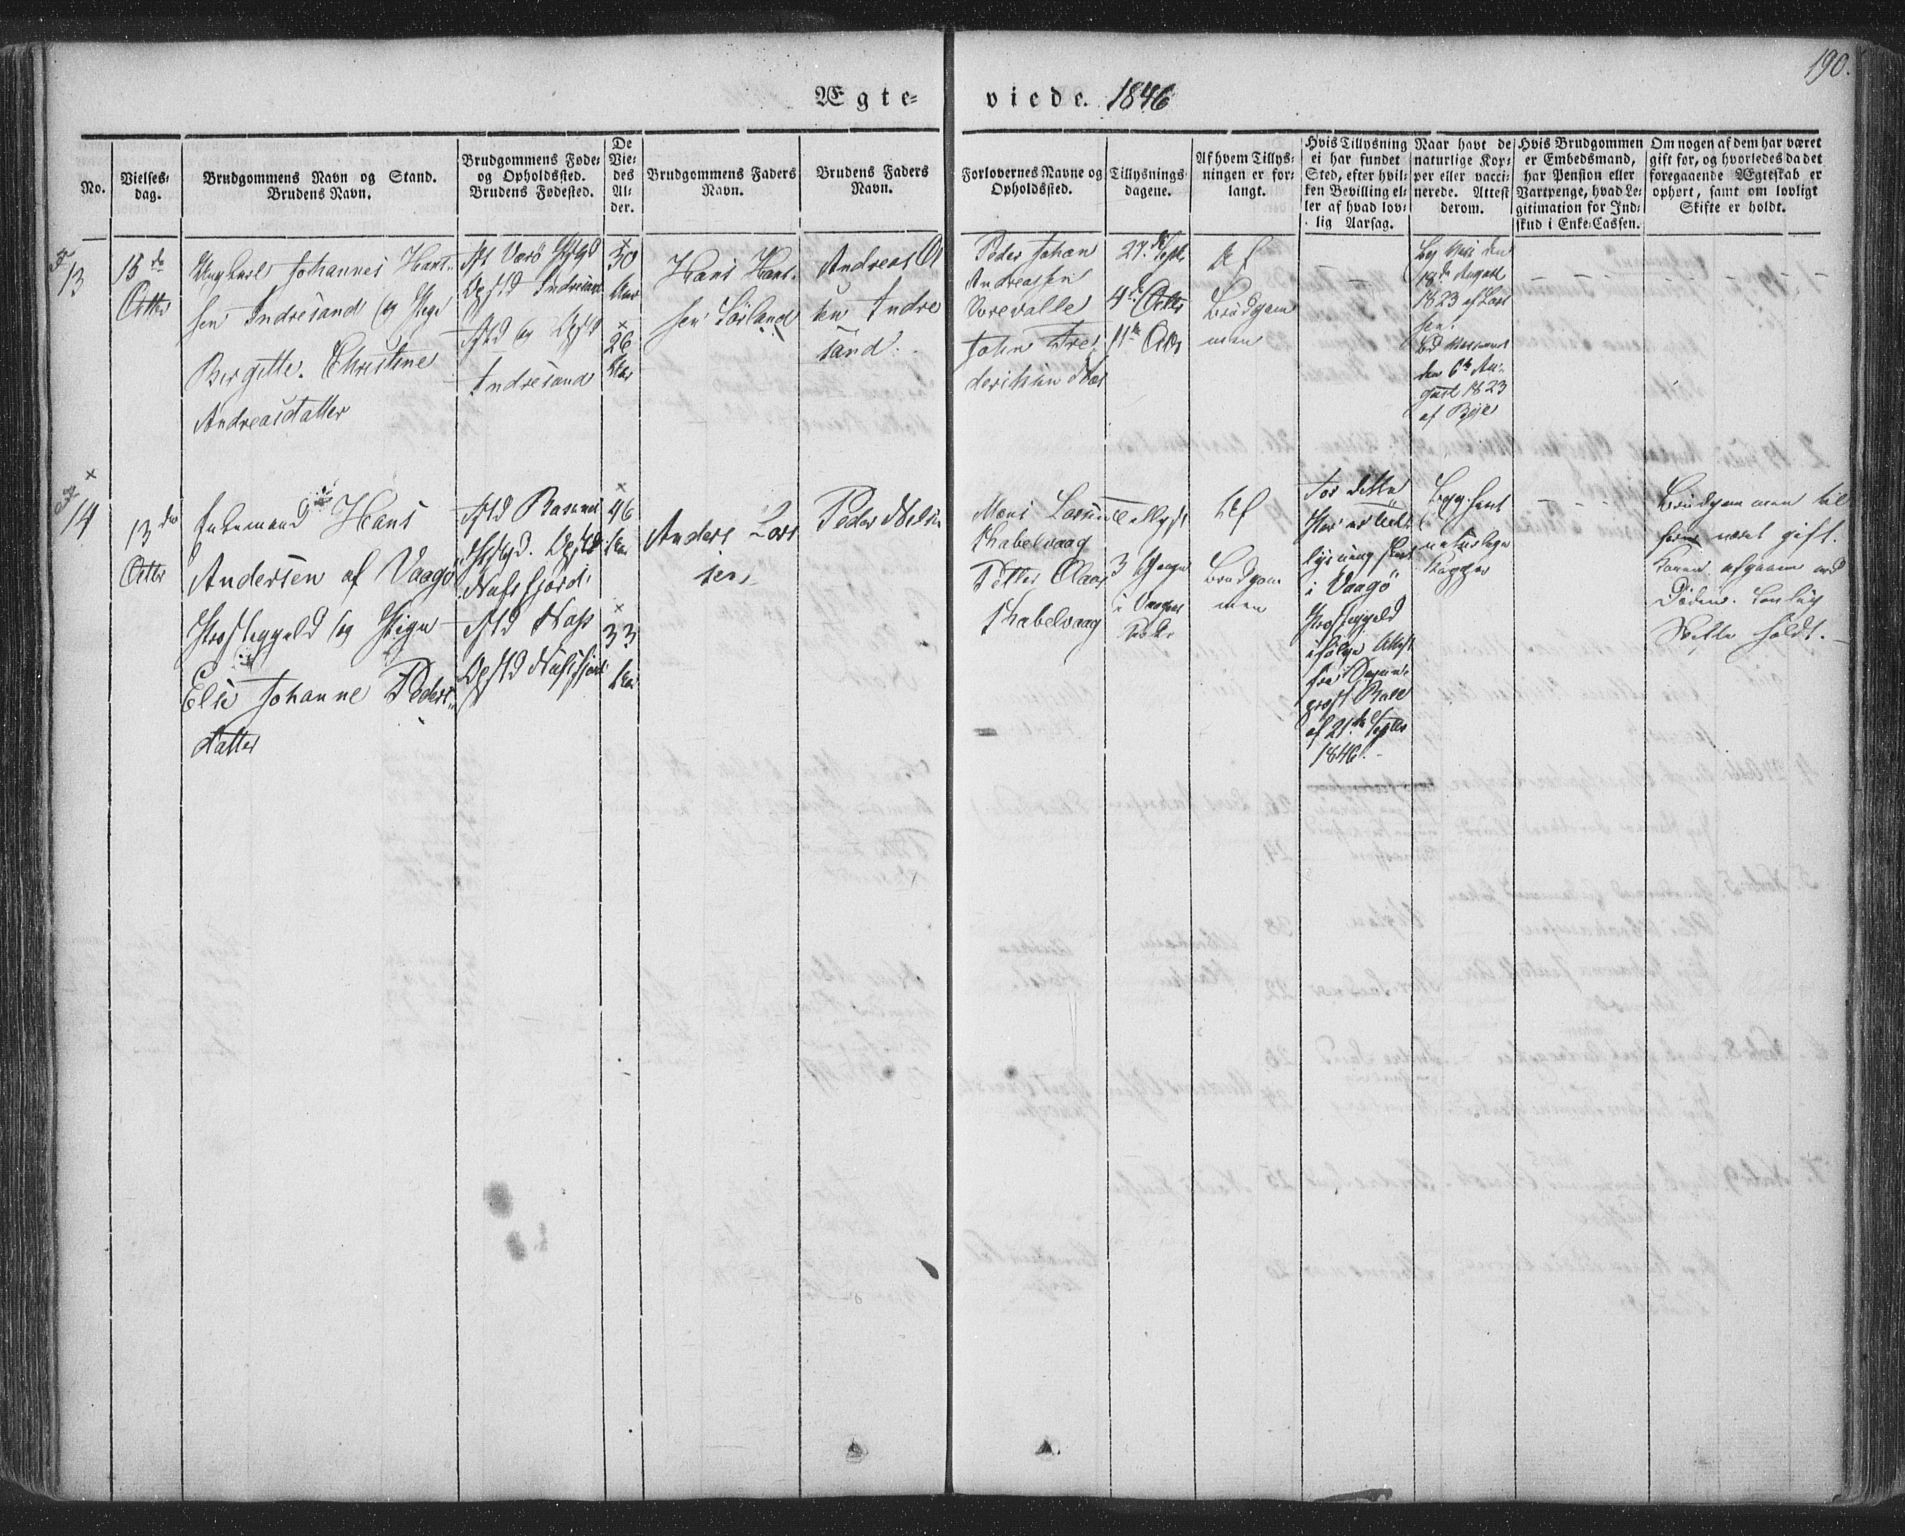 190.
Ægteviede. 1846
No.
Vielses-
dag.
Brudgommens Navn og Stand.
Brudens Navn.
Brudgommens Føde-
og Opholdssted.
Brudens Fødested.
De
Vie-
des
Al-
der.
Brudgommens Faders
Navn.
Brudens Faders
Navn.
Forlovernes Navne og
Opholdssted.
Tillysnings-
dagene.
Af hvem Tillys-
ningen er for-
langt.
Hvis Tillysning
ei har fundet
Sted, efter hvil-
ken Bevilling el-
ler af hvad lov-
lig Aarsag.
Naar havt de
naturlige Kop-
per eller vacci-
nerede. Attest
derom.
Hvis Brudgommen
er Embedsmand,
har Pension eller
Vartpenge, hvad Le-
gitimation for Ind-
skud i Enke-Cassen.
Om nogen af dem har været
gift før, og hvorledes da det
foregaaende Ægteskab er
ophørt, samt om lovligt
Skifte er holdt.
13
Ungkarl Johannes Han-
sen Indresand og Pige
Birgitte Christine
Andreasdatter
Værø
Indresand
og
Indresand
30
Aar
26
Aar
Hans Han-
sen Sørland
Andreas
Indre
sand.
Peder Johan
Andreassen
Johan Fre-
deriksen
27. Septr
4de Octbr
11te Octbr
Af
Brudgom
men
den
18de August
1823 af
den 6te Au-
gust 1823
af
14
13de
Octbr
Enkemand Hans
Andersen af Vaagø
Præstegjeld og Pige
Else Johanne Peders-
datter
Nufsfjord
46
Aar
33
Aar
Anders Lars
sen
Peder Nielsen
Skabelvaag
Petter Olaas
Skabelvaag
Tellyst
3 Gange
i Vaagø
Af
Brudgom
men
For dette
Par er Til-
lysning skeet
i Vaagø
Præstegjeld
ifølge Attest
fra
af 21de Septbr
1846.
Begge havt
naturlige
Kopper
Brudgommen til
forn været gift.
Konen afgaaen ved
Døden. Lovlig
Skifte holdt.